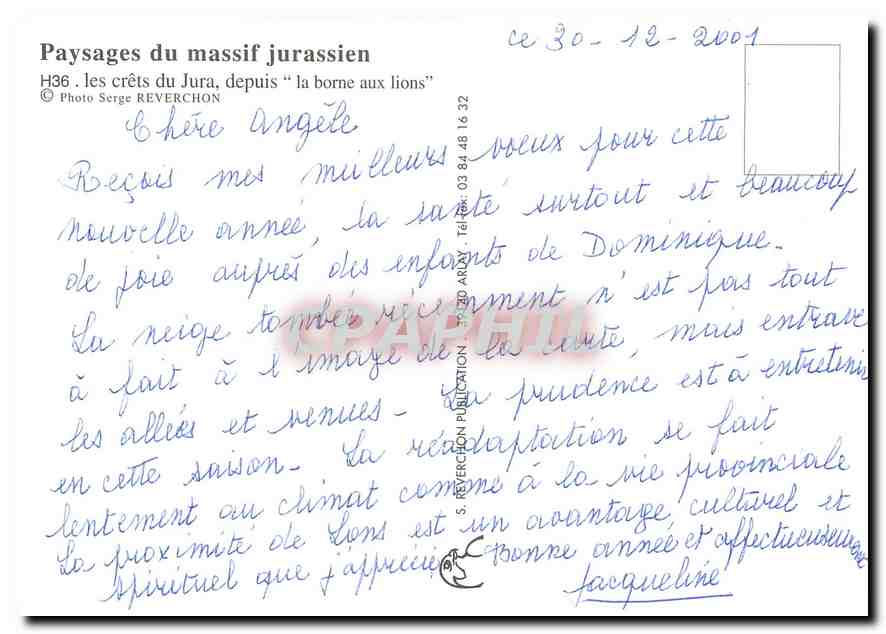 ce 30-12-2001
Paysages du massif jurassien
H36 . les crêts du Jura, depuis “ la borne aux lions”
© Photo Serge REVERCHON
Chère Angèle
Reçois mes meilleurs voeux pour cette
nouvelle année, la santé surtout et beaucoup
de joie auprès des enfants de Dominique.
La neige tombée récemment n'est pas tout
à fait à l'image de la carte, mais entrave
les allées et venues - La prudence est à entretenir
en cette saison - La réadaptation se fait
lentement au climat comme à la vie provinciale
La proximité de Lons est un avantage culturel et
spirituel que j'apprécie - Bonne année et affectueusement
Jacqueline
S. REVERCHON PUBLICATION . 39140 ARLAY . Tél-fax: 03 84 48 16 32
CPAPHIL